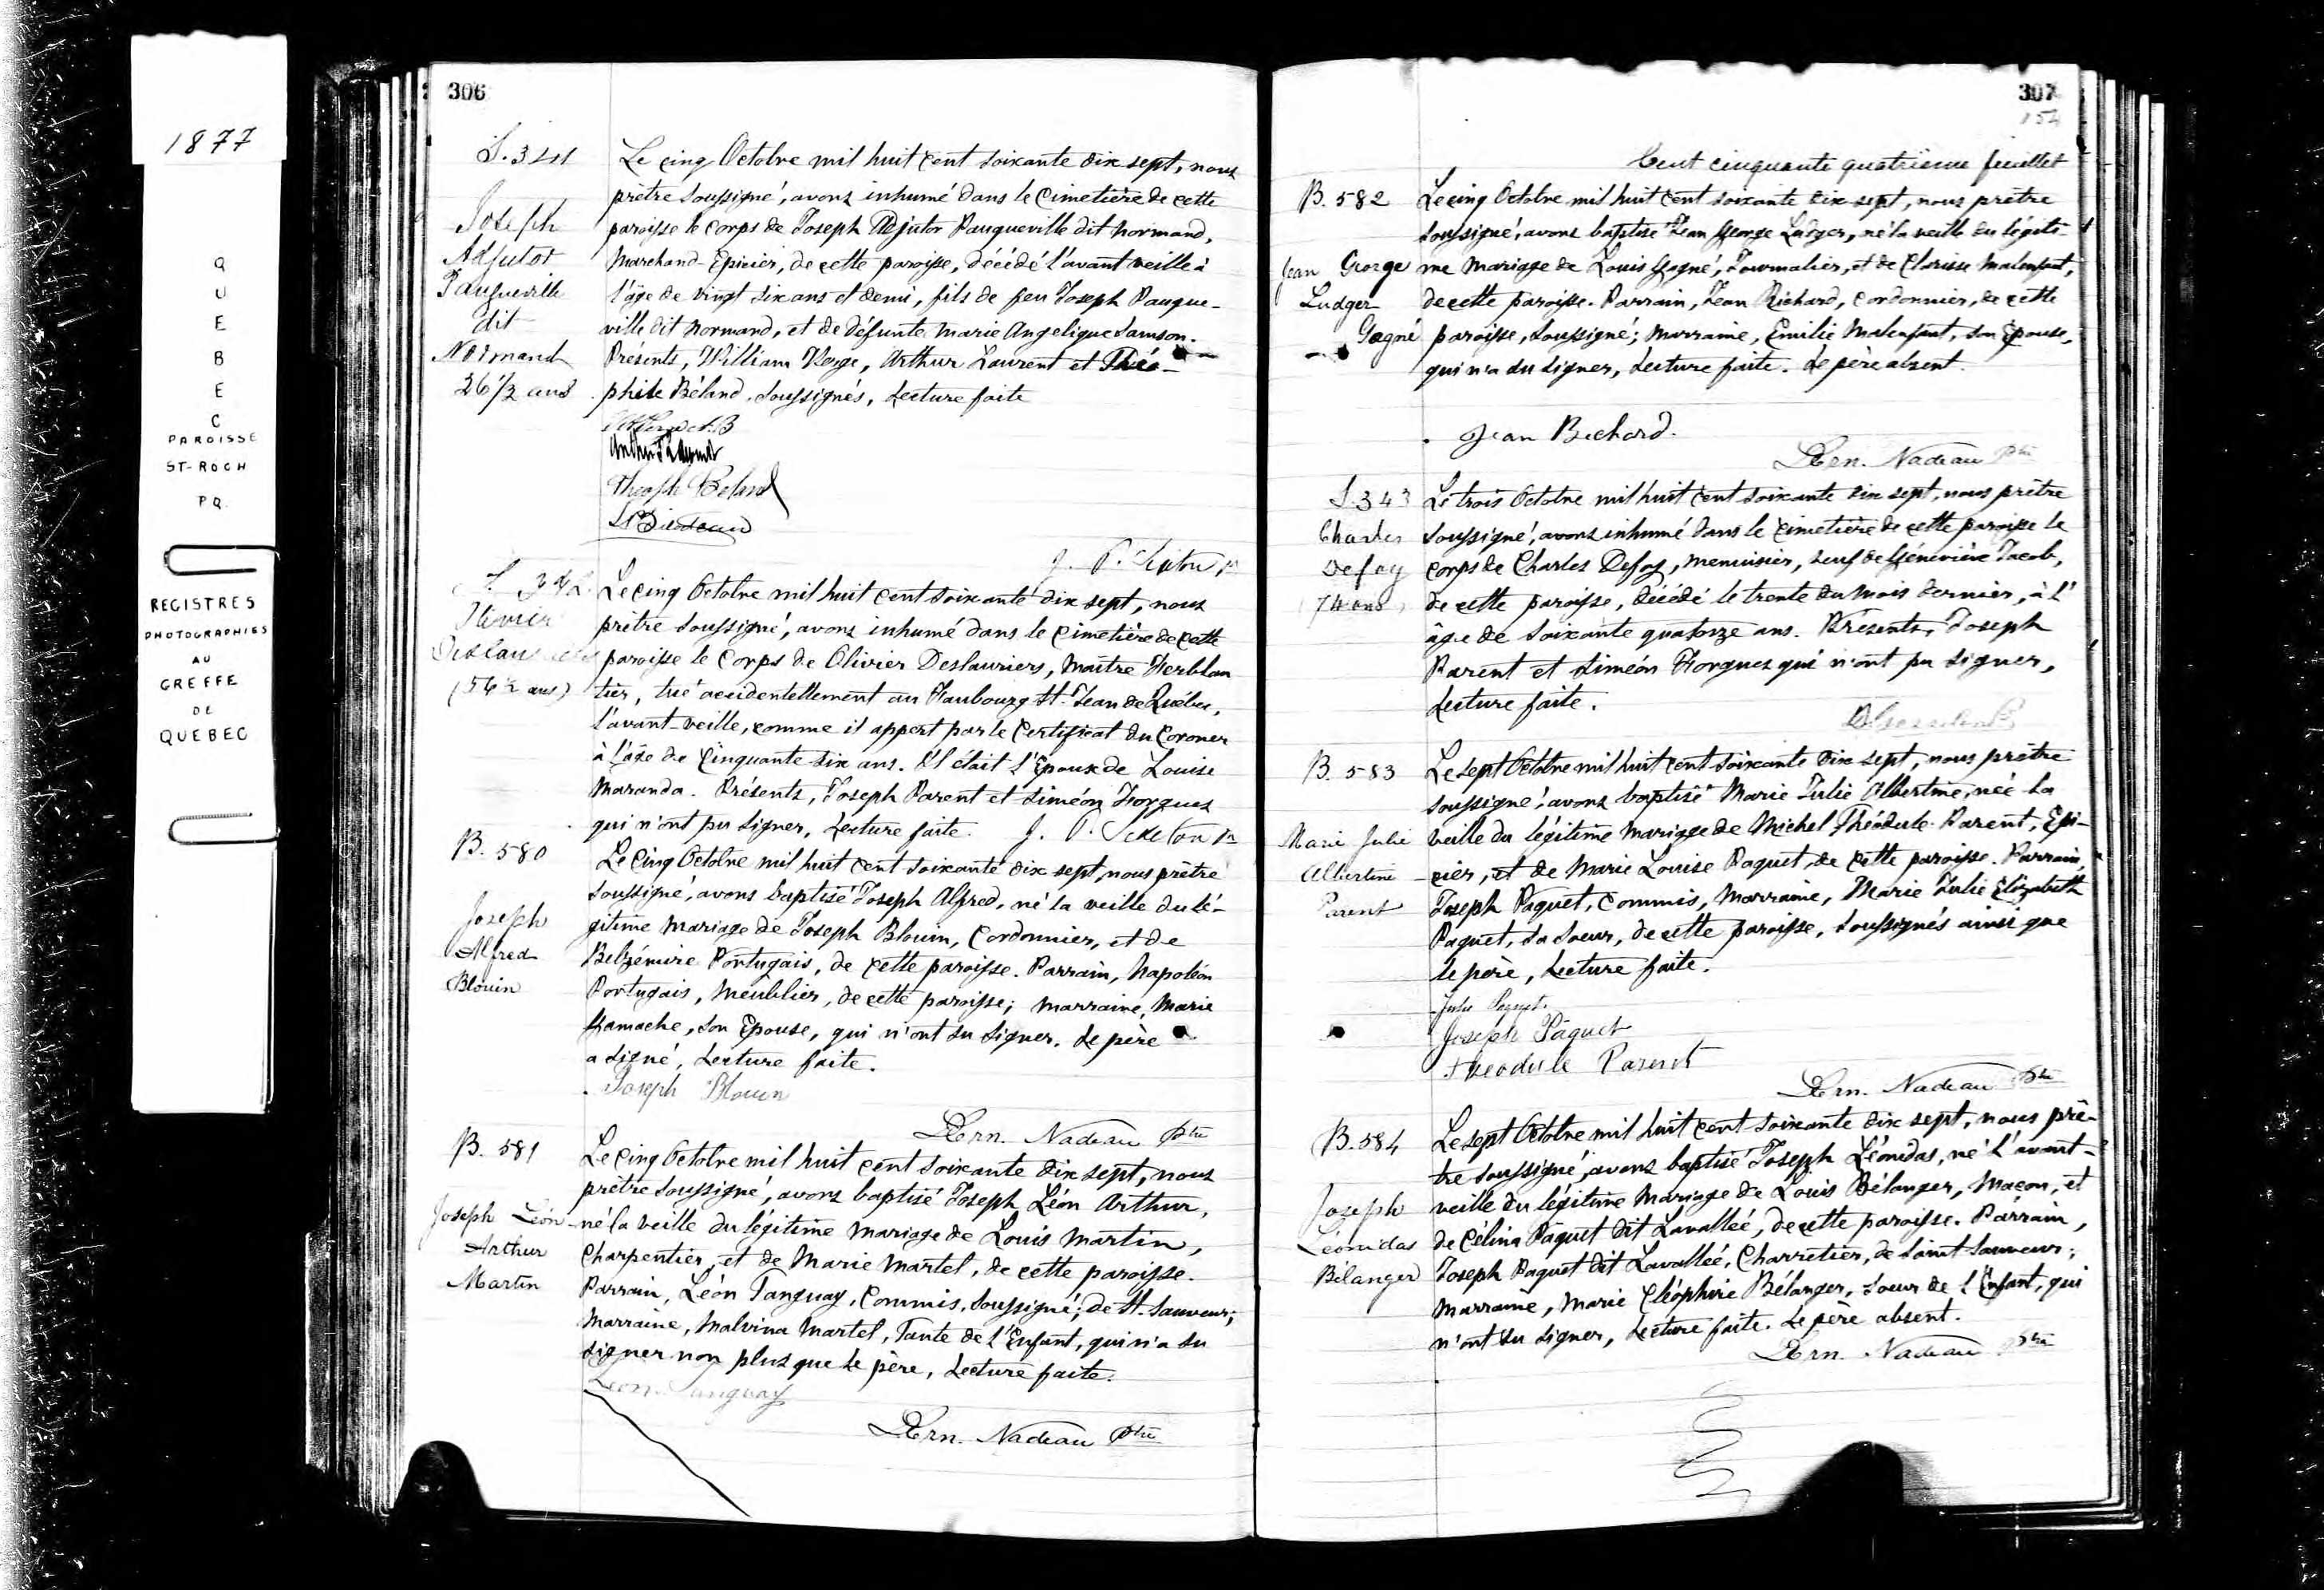 1877
Q
U
E
B
E
C
PAROISSE
ST-ROCH
PQ.
REGISTRES
PHOTOGRAPHIES
AU
GREFFE
DE
QUEBEC
306
S. 341
Joseph
Adjutor
Pauqueville
dit
Normand
26 1/2 ans
Le cinq Octobre mil huit cent soixante dix sept, nous
prêtre soussigné, avons inhumé dans le Cimetière de cette
paroisse le corps de Joseph Adjutor Pauqueville dit Normand,
Marchand-Epicier, de cette paroisse, décédé l'avant veille à
l'âge de vingt six ans et demi, fils de feu Joseph Pauque-
ville dit Normand, et de défunte Marie Angelique Samson.
Présents, William Verge, Arthur Laurent et Théo-
phile Béland, soussignés, Lecture faite
Arthur Laurent
Theoph Beland
J. P. Sexton Pr
S. 342
Olivier
Deslauriers
(56 1/2 ans)
Le cinq Octobre mil huit cent soixante dix sept, nous
prêtre soussigné, avons inhumé dans le Cimetière de cette
paroisse le Corps de Olivier Deslauriers, Maître-Ferblan
tier, tué accidentellement au Faubourg St. Jean de Québec,
l'avant-veille, comme il appert par le Certificat du Coroner
à l'âge de Cinquante six ans. Il était l'Epoux de Louise
Maranda. Présents, Joseph Parent et Siméon Forgues
qui n'ont pu signer, Lecture faite. J. P. Sexton Pr
B. 580
Joseph
Alfred
Blouin
Le Cinq Octobre mil huit cent soixante dix sept, nous prêtre
soussigné, avons baptisé Joseph Alfred, né la veille du lé-
gitime mariage de Joseph Blouin, Cordonnier, et de
Belzémire Portugais, de cette paroisse. Parrain, Napoléon
Portugais, Meublier, de cette paroisse; marraine, Marie
Gamache, son Epouse, qui n'ont su signer. Le père
a signé, Lecture faite.
Joseph Blouin
Ern. Nadeau Ptre
B. 581
Joseph Léon
Arthur
Martin
Le Cinq Octobre mil huit cent soixante dix sept, nous
prêtre soussigné, avons baptisé Joseph Léon Arthur,
né la veille du légitime mariage de Louis Martin,
Charpentier, et de Marie Martel, de cette paroisse.
Parrain, Léon Tanguay, Commis, soussigné; de St. Sauveur;
Marraine, Malvina Martel, Tante de l'Enfant, qui n'a su
signer non plus que le père, Lecture faite.
Leon Tanguay
Ern. Nadeau Ptre
307
154
Cent cinquante quatrième feuillet
B. 582
Jean George
Ludger
Gagné
Le cinq Octobre mil huit cent soixante dix sept, nous prêtre
soussigné, avons baptisé Jean George Ludger, né la veille du légiti-
me Mariage de Louis Gagné, Journalier, et de Clarisse Malenfant,
de cette paroisse. Parrain, Jean Richard, Cordonnier, de cette
paroisse, soussigné; marraine, Emilie Malenfant, son Epouse,
qui n'a su signer, Lecture faite. Le père absent.
Jean Richard.
Ern. Nadeau Ptre
S. 343
Charles
Defoy
(74 ans)
Le trois Octobre mil huit cent soixante dix sept, nous prêtre
soussigné, avons inhumé dans le Cimetière de cette paroisse le
corps de Charles Defoy, menuisier, veuf de Généviève Jacob,
de cette paroisse, décédé le trente du mois dernier, à l'
âge de soixante quatorze ans. Présents, Joseph
Parent et Siméon Forgues qui n'ont pu signer,
Lecture faite.
B. 583
Marie Julie
Albertine
Parent
Le sept Octobre mil huit cent soixante dix sept, nous prêtre
soussigné, avons baptisé Marie Julie Albertine, née la
veille du légitime Mariage de Michel Théodule Parent, Epi-
cier, et de Marie Louise Paquet, de cette paroisse. Parrain,
Joseph Paquet, Commis, Marraine, Marie Julie Elizabeth
Paquet, sa soeur, de cette paroisse, soussignés ainsi que
le père, Lecture faite.
Julie Paquet.
Joseph Pâquet
Theodule Parent
Ern. Nadeau Ptre
B. 584
Joseph
Léonidas
Bélanger
Le sept Octobre mil huit cent soixante dix sept, nous prê-
tre soussigné, avons baptisé Joseph Léonidas, né l'avant-
veille du légitime Mariage de Louis Bélanger, Maçon, et
de Célina Paquet dit Lavallée, de cette paroisse. Parrain,
Joseph Paquet dit Lavallée, Charretier, de Saint Sauveur;
Marraine, Marie Cléophire Bélanger, soeur de l'Enfant, qui
n'ont su signer, Lecture faite. Le père absent.
Ern. Nadeau Ptre